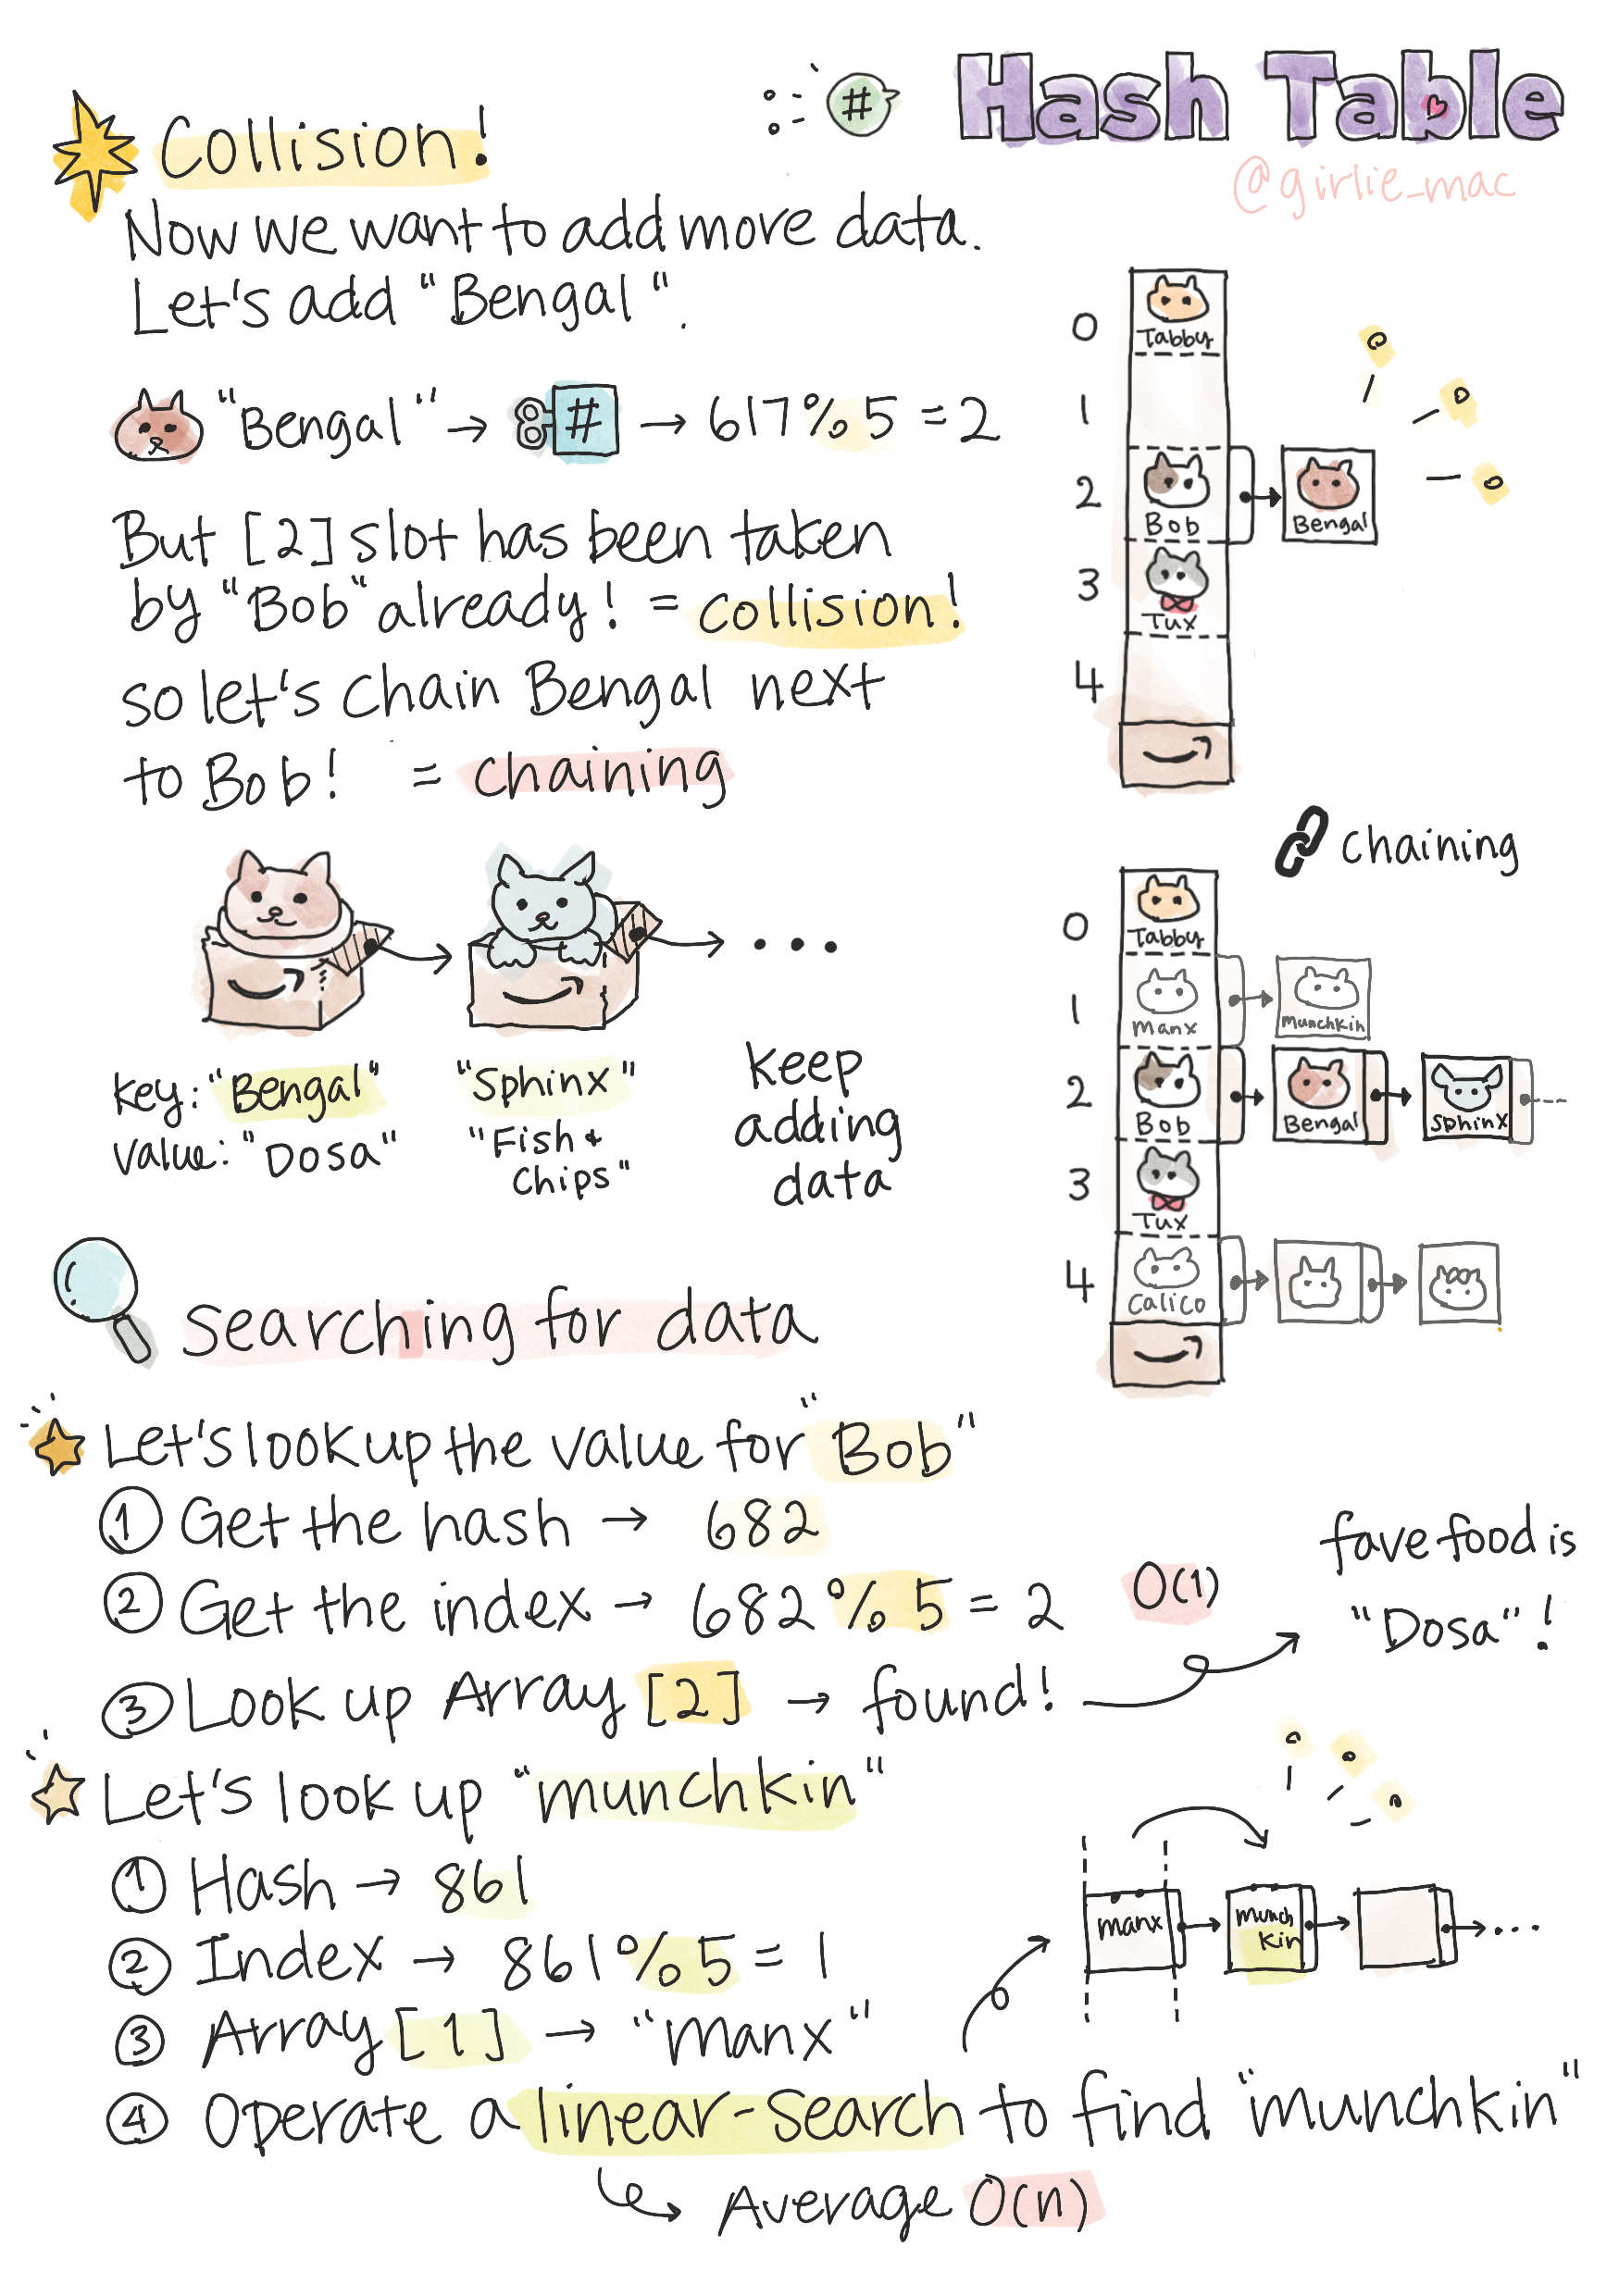 # Hash Table
@girlie_mac
Collision!
Now we want to add more data.
Let's add "Bengal".
"Bengal" → # → 617 % 5 = 2
But [2] slot has been taken
by "Bob" already! = collision!
so let's chain Bengal next
to Bob! = chaining
0
Tabby
1
2
Bob
Bengal
3
Tux
4
Key: "Bengal"
Value: "Dosa"
"Sphinx"
"Fish +
Chips"
...
Keep
adding
data
chaining
0
Tabby
1
Manx
Munchkin
2
Bob
Bengal
Sphinx
3
Tux
4
Calico
Searching for data
Let's look up the value for "Bob"
① Get the hash → 682
② Get the index → 682 % 5 = 2
O(1)
③ Look up Array [2] → found!
fave food is
"Dosa"!
Let's look up "munchkin"
① Hash → 861
② Index → 861 % 5 = 1
③ Array [1] → "manx"
④ Operate a linear-search to find "munchkin"
Average O(n)
manx
munch
kin
...